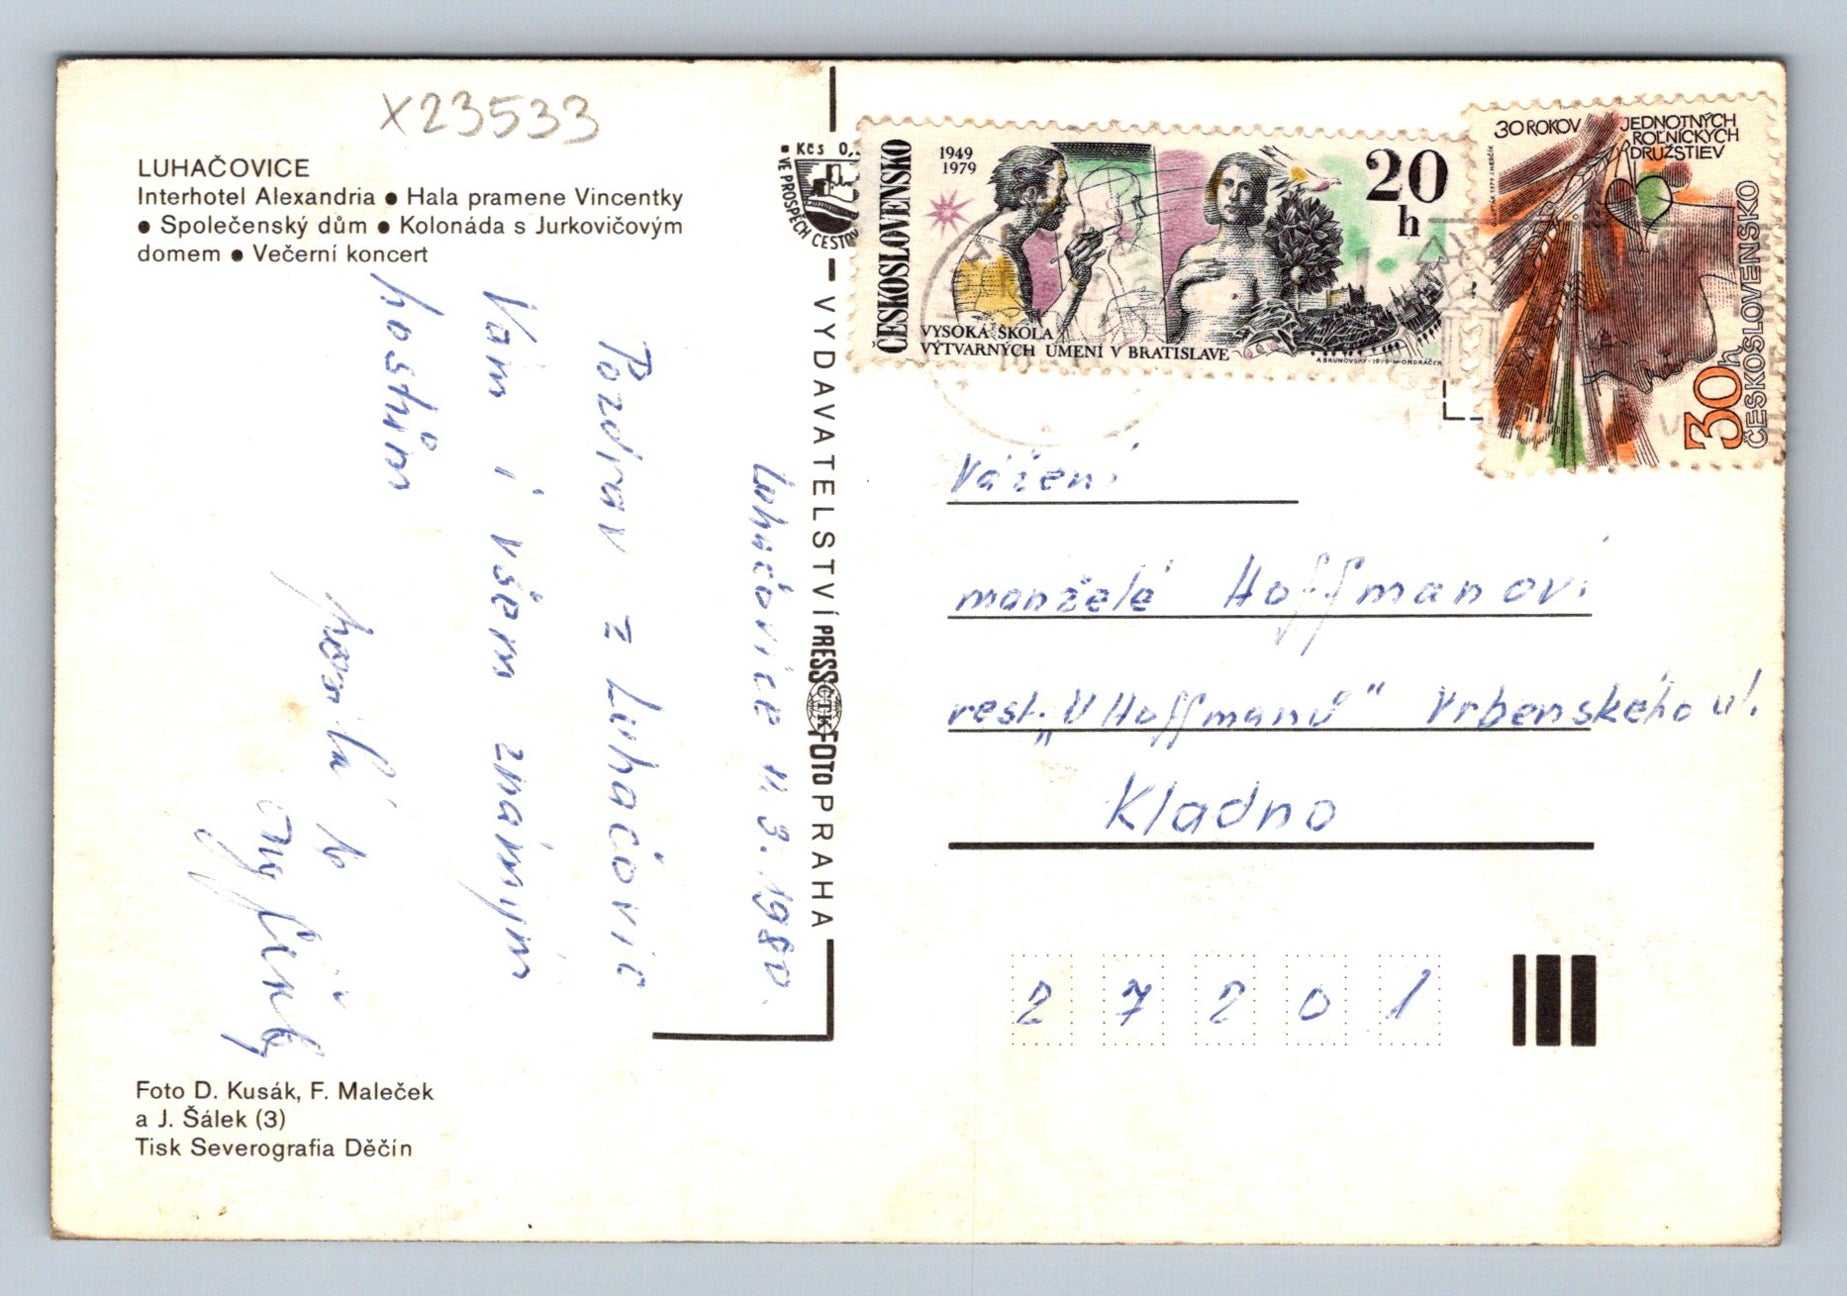 X23533
LUHAČOVICE
Interhotel Alexandria ● Hala pramene Vincentky
● Společenský dům ● Kolonáda s Jurkovičovým
domem ● Večerní koncert
Luhačovice 11. 3. 1980.
Pozdrav z Luhačovic
Vám i všem známým
hostům
Foto D. Kusák, F. Maleček
a J. Šálek (3)
Tisk Severografia Děčín
Kčs 0,
VE PROSPĚCH CESTOV
VYDAVATELSTVÍ PRESSFOTO PRAHA
ČTK
ČESKOSLOVENSKO
1949
1979
20
h
VYSOKÁ ŠKOLA
VÝTVARNÝCH UMENÍ V BRATISLAVE
A.BRUNOVSKÝ · 1979 · M·ONDRÁČEK
30 ROKOV JEDNOTNÝCH
ROĽNÍCKÝCH
DRUŽSTIEV
30h
ČESKOSLOVENSKO
Vážení
manželé Hoffmanovi
rest. „U Hoffmanů“ Vrbenského ul.
Kladno
2 7 2 0 1